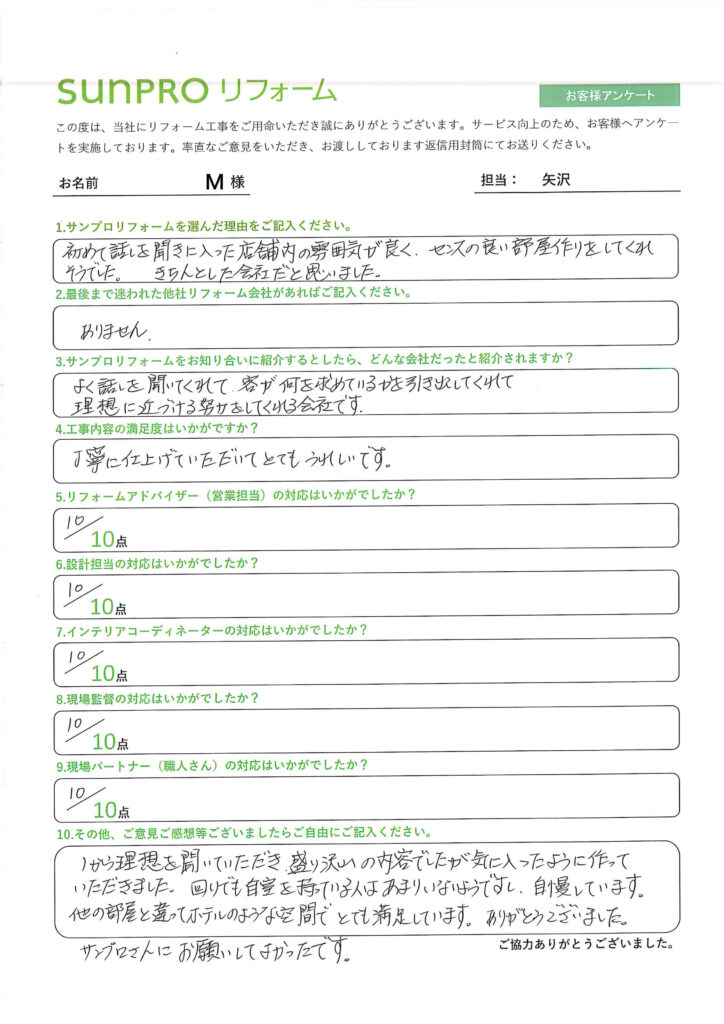 sunPRO リフォーム
お客様アンケート
この度は、当社にリフォーム工事をご用命いただき誠にありがとうございます。サービス向上のため、お客様へアンケー
トを実施しております。率直なご意見をいただき、お渡ししております返信用封筒にてお送りください。
お名前 M 様 担当： 矢沢
1.サンプロリフォームを選んだ理由をご記入ください。
初めて話しを聞きに入った店舗内の雰囲気が良く、センスの良い部屋作りをしてくれ
そうでした。 きちんとした会社だと思いました。
2.最後まで迷われた他社リフォーム会社があればご記入ください。
ありません.
3.サンプロリフォームをお知り合いに紹介するとしたら、どんな会社だったと紹介されますか？
よく話しを聞いてくれて 客が何を求めているかを引き出してくれて
理想に近づける努力をしてくれる会社です.
4.工事内容の満足度はいかがですか？
丁寧に仕上げていただいてとてもうれしいです。
5.リフォームアドバイザー（営業担当）の対応はいかがでしたか？
10/10点
6.設計担当の対応はいかがでしたか？
10/10点
7.インテリアコーディネーターの対応はいかがでしたか？
10/10点
8.現場監督の対応はいかがでしたか？
10/10点
9.現場パートナー（職人さん）の対応はいかがでしたか？
10/10点
10.その他、ご意見ご感想等ございましたらご自由にご記入ください。
1から理想を聞いていただき 盛り沢山の内容でしたが気に入ったように作って
いただきました。 回りでも自室を持っている人はあまりいないようですし、自慢しています。
他の部屋と違ってホテルのような空間で とても満足しています。 ありがとうございました。
サンプロさんに お願いしてよかったです。
ご協力ありがとうございました。